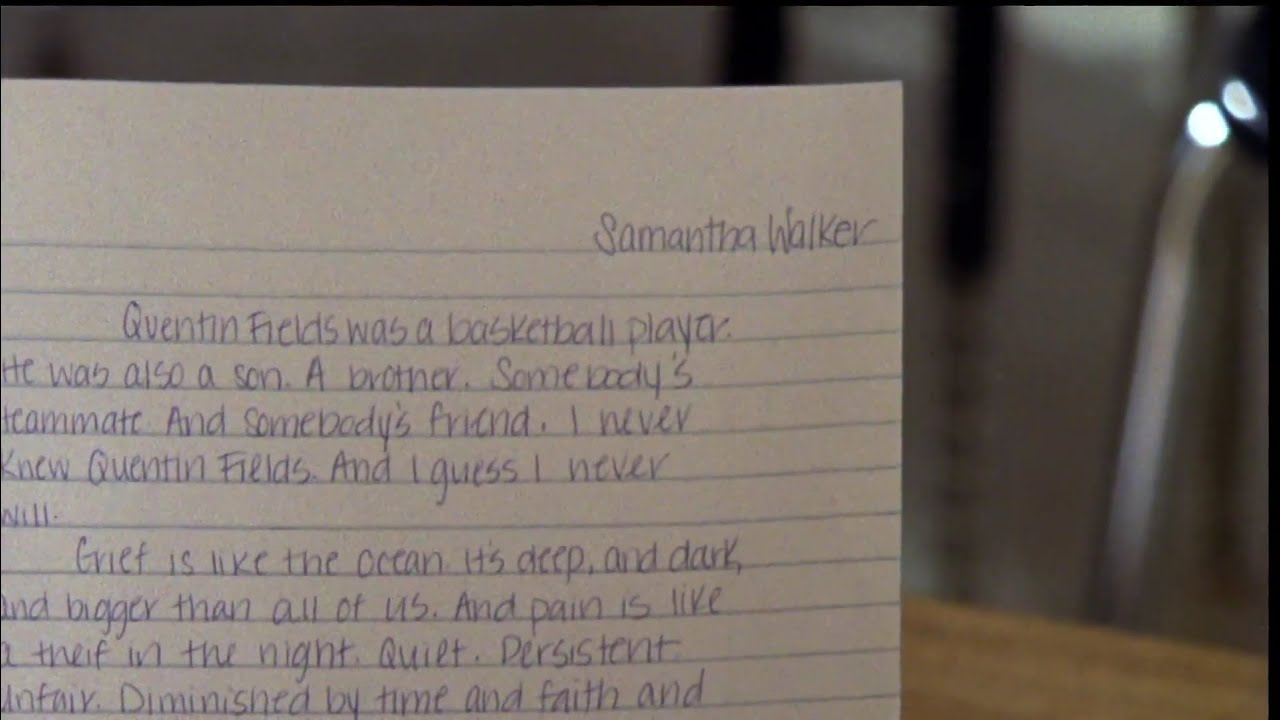 Samantha Walker
Quentin Fields was a basketball player.
He was also a son. A brother. Somebody's
teammate. And somebody's friend. I never
knew Quentin Fields. And I guess I never
will.
Grief is like the ocean. It's deep, and dark,
and bigger than all of us. And pain is like
a theif in the night. Quiet. Persistent.
Unfair. Diminished by time and faith and